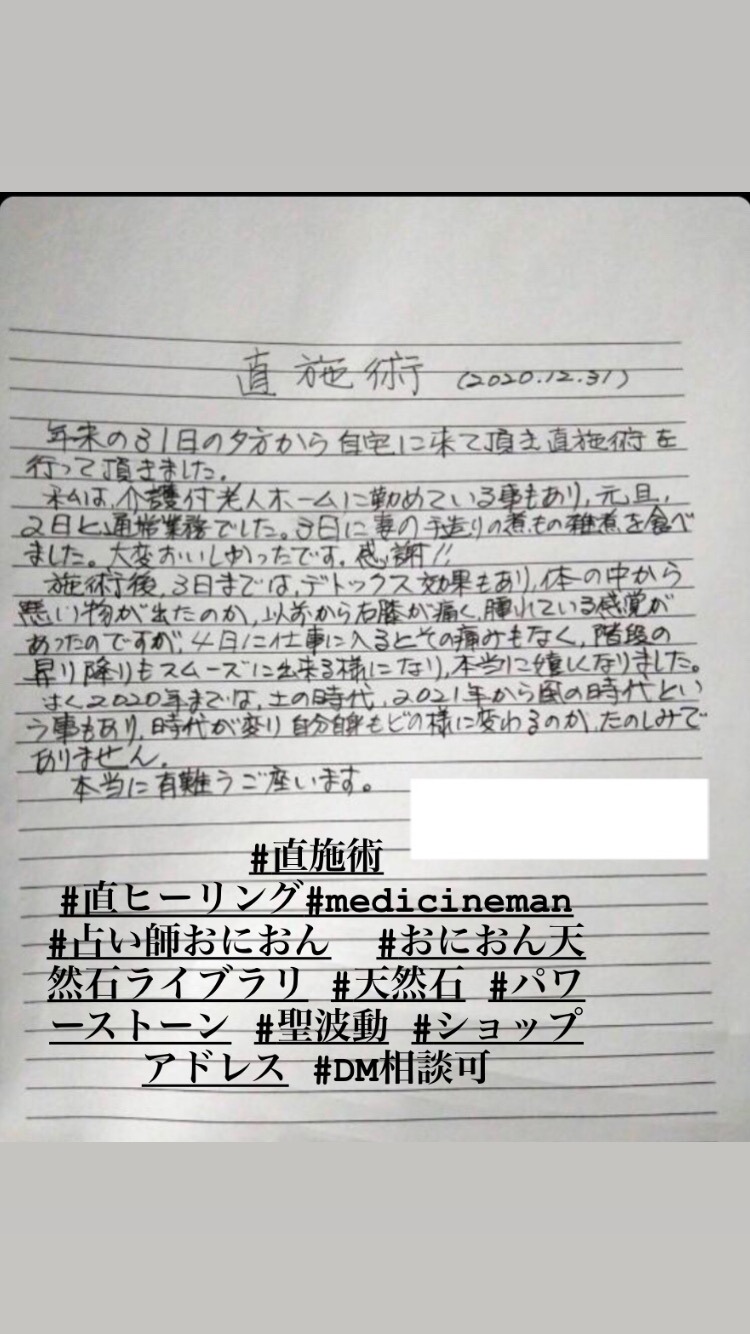 直施術 (2020.12.31)
年末の31日の夕方から自宅に来て頂き直施術を
行って頂きました。
私は、介護付老人ホームに勤めている事もあり、元旦、
2日と通常業務でした。3日に妻の手造りの煮もの雑煮を食べ
ました。大変おいしかったです。感謝!!
施術後、3日までは、デトックス効果もあり、体の中から
悪い物が出たのか、以前から右膝が痛く、腫れている感覚が
あったのですが、4日に仕事に入るとその痛みもなく、階段の
昇り降りもスムーズに出来る様になり、本当に嬉しくなりました。
2020年までは、土の時代、2021年から風の時代とい
う事もあり、時代が変り自分自身もどの様に変わるのか、たのしみで
ありません。
本当に有難うご座います。
#直施術
#直ヒーリング#medicineman
#占い師おにおん #おにおん天
然石ライブラリ #天然石 #パワ
ーストーン #聖波動 #ショップ
アドレス #DM相談可